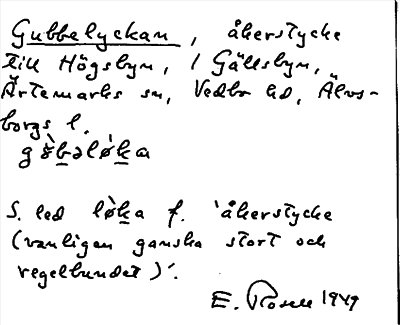 Gubbelyckan, åkerstycke
till Högsbyn, / Gällsbyn,
Ärtemarks sn, Vedbo hd, Älvs-
borgs l.
gɞ̀bəlø̀ka
S. led lø̀ka f. 'åkerstycke
(vanligen ganska stort och
regelbundet)'.
E. Rosell 1949